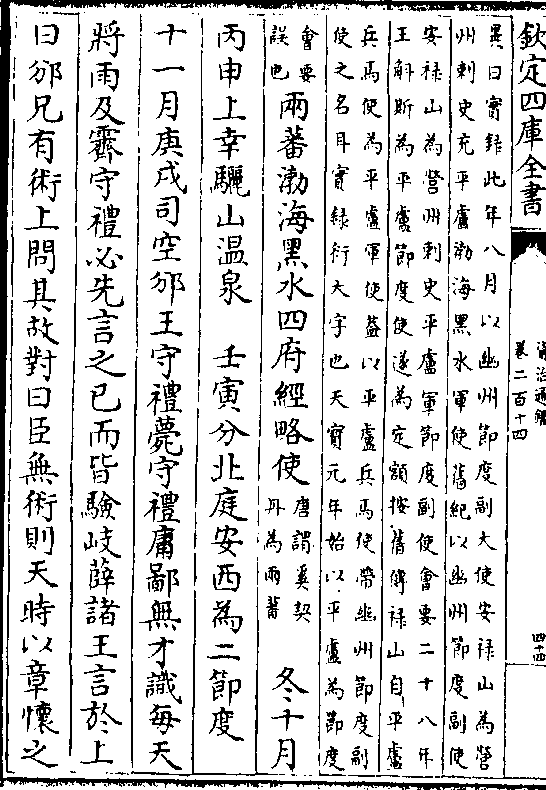 欽定四庫全書
資治通鑑
卷二百十四
四十四
異曰實録此年八月以幽州節度副大使安禄山為營
州刺史充平盧渤海黑水軍使舊紀以幽州節度副使
安禄山為營州刺史平盧軍節度副使會要二十八年
王斛斯為平盧節度使遂為定額按舊傳禄山自平盧
兵馬使為平盧軍使葢以平盧兵馬使帶幽州節度副
使之名耳實録衍大字也天寶元年始以平盧為節度
會要誤也兩蕃渤海黑水四府經略使唐謂奚契丹為兩蕃冬十月
丙申上幸驪山温泉壬寅分北庭安西為二節度
十一月庚戌司空邠王守禮薨守禮庸鄙無才識每天
將雨及霽守禮必先言之已而皆驗岐薛諸王言於上
曰邠兄有術上問其故對曰臣無術則天時以章懷之